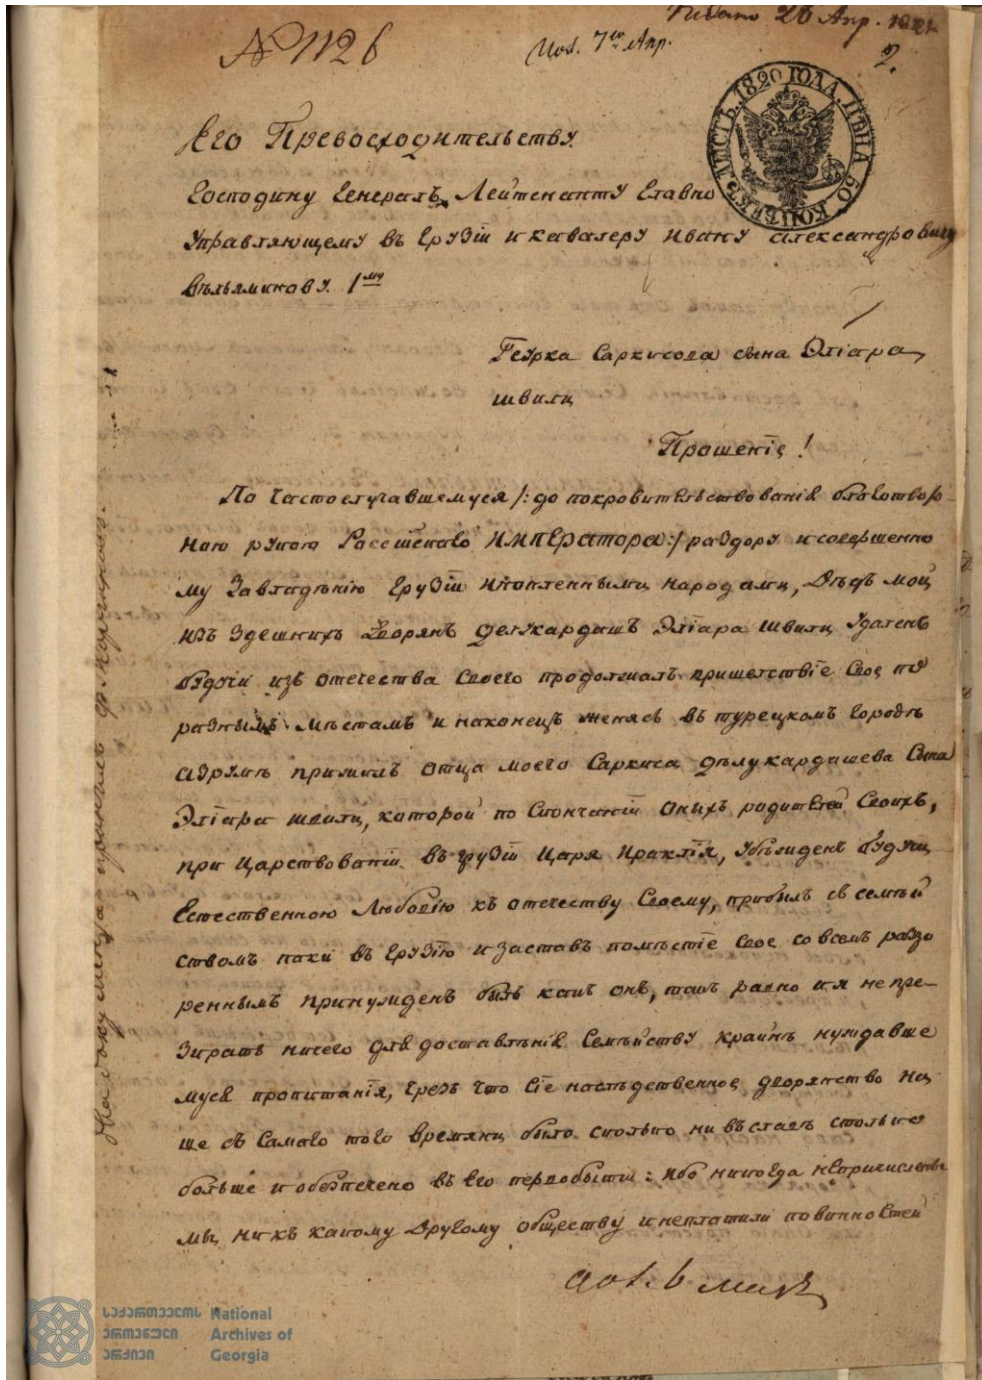 № 1126
Пол. 7го Апр.
Писано 26 Апр. 1821
2.
ЛИСТЪ. 1820 ГОДА. ЦѢНА 50 КОПѢЕКЪ
Его Превосходительству
Господину Генералъ Лейтенанту Главно
Управляющему въ Грузіи и кавалеру Ивану Александровичу
Вельяминову 1му
Геурка Саркисова сына Эліара
швили
Прошеніе!
По частослучавшемуся /: до покровительствованія благотвор
ною рукою Россійскаго ИМПЕРатора :/ раздору и совершенно
му Завладѣнію Грузіи иноплеменными народами, Дѣдъ мой
изъ здешнихъ Дворянъ Делукардашъ Эліара швили Удаленъ
будучи изъ отечества Своего продолжалъ пришествіе Свое по
разнымъ мѣстамъ и наконецъ женясь въ турецкомъ городѣ
Азрумѣ прижилъ отца моего Саркиса Дѣлукардашева Сына
Эліара швили, которой по Скончаніи оныхъ родителей Своихъ,
при Царствованіи въ грузіи Царя Ираклія, Убѣжденъ будучи
Естественною Любовію къ отечеству Своему, прибылъ съ семей
ствомъ паки въ Грузію и заставъ помѣстіе Свое со всемъ разо
реннымъ принужденъ былъ какъ онъ, такъ равно и я не пре-
зирать ничего для доставлѣнія Семѣйству крайнѣ нуждавше
муся пропитанія, чрезъ что Сіе наслѣдственное дворянство на
ше съ Самаго того времяни было столько ни въ славѣ столько
больше и обезпечено въ Его первобытіи: ибо никогда неприкислены
мы, ни къ какому Другому обществу и неплатили повинностей
საქართველოს
ეროვნული
არქივი
National
Archives of
Georgia